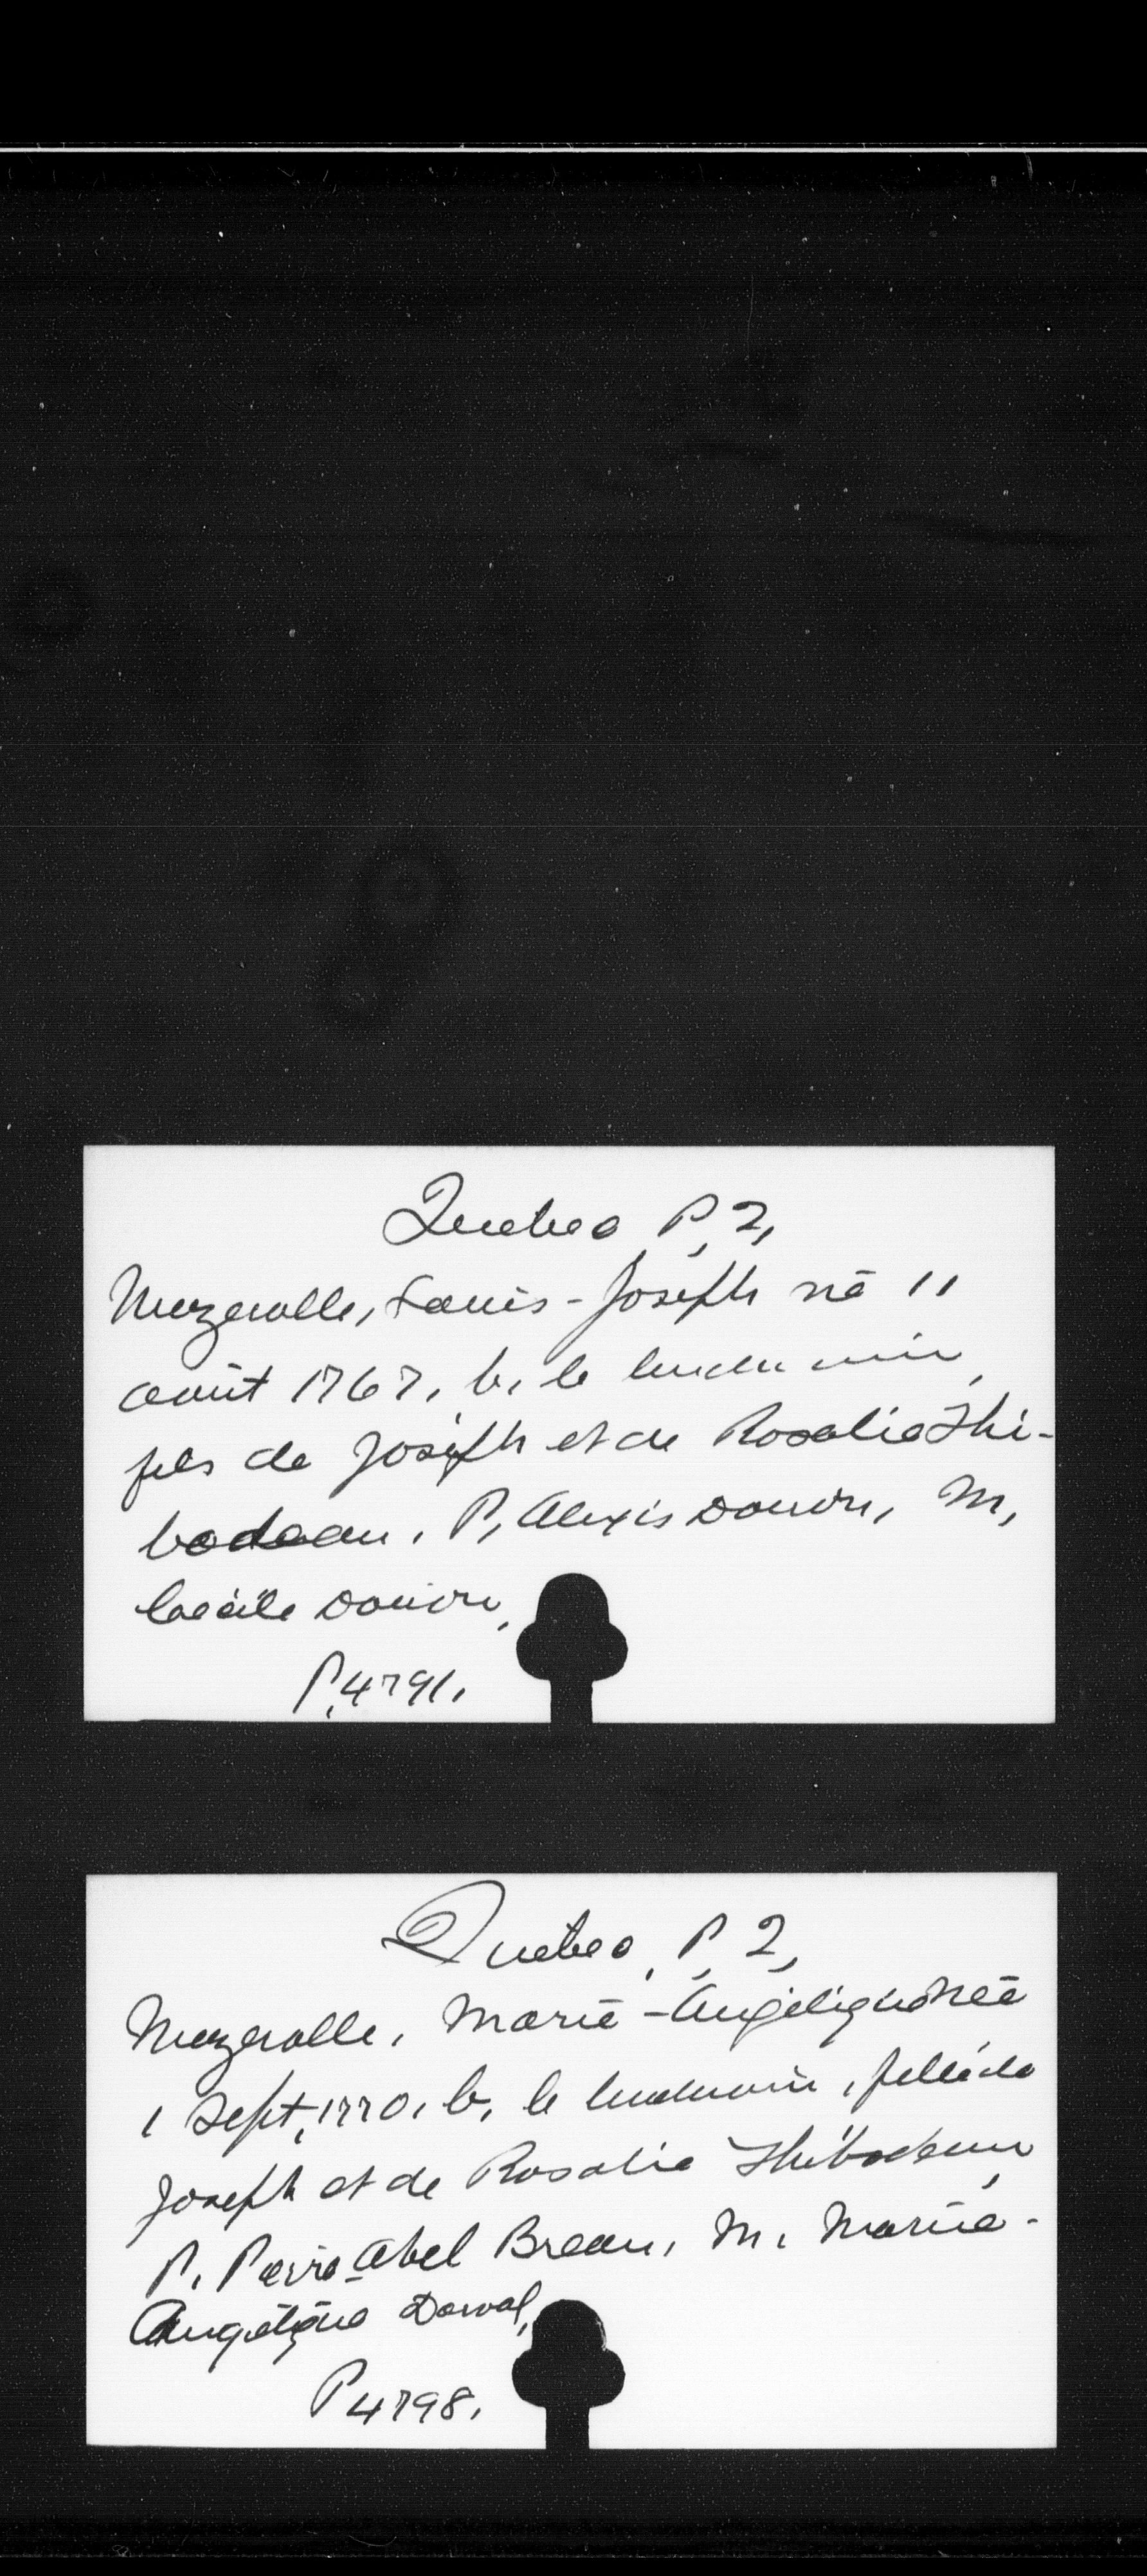 Quebec P. 2,
Muzerolle, Louis-Joseph né 11
août 1767, b. le lendemain,
fils de Joseph et de Rosalie Thi-
bodeau. P, Alexis Douon, M,
Cécile Douon,
P. 4791.
Quebec, P. 2,
Muzerolle, Marie-Angélique née
1 Sept, 1770, b, le lendemain, fille de
Joseph et de Rosalie Thibodeau,
P. Pierre-Abel Breau, M. Marie-
Angélique Dorval,
P 4798.